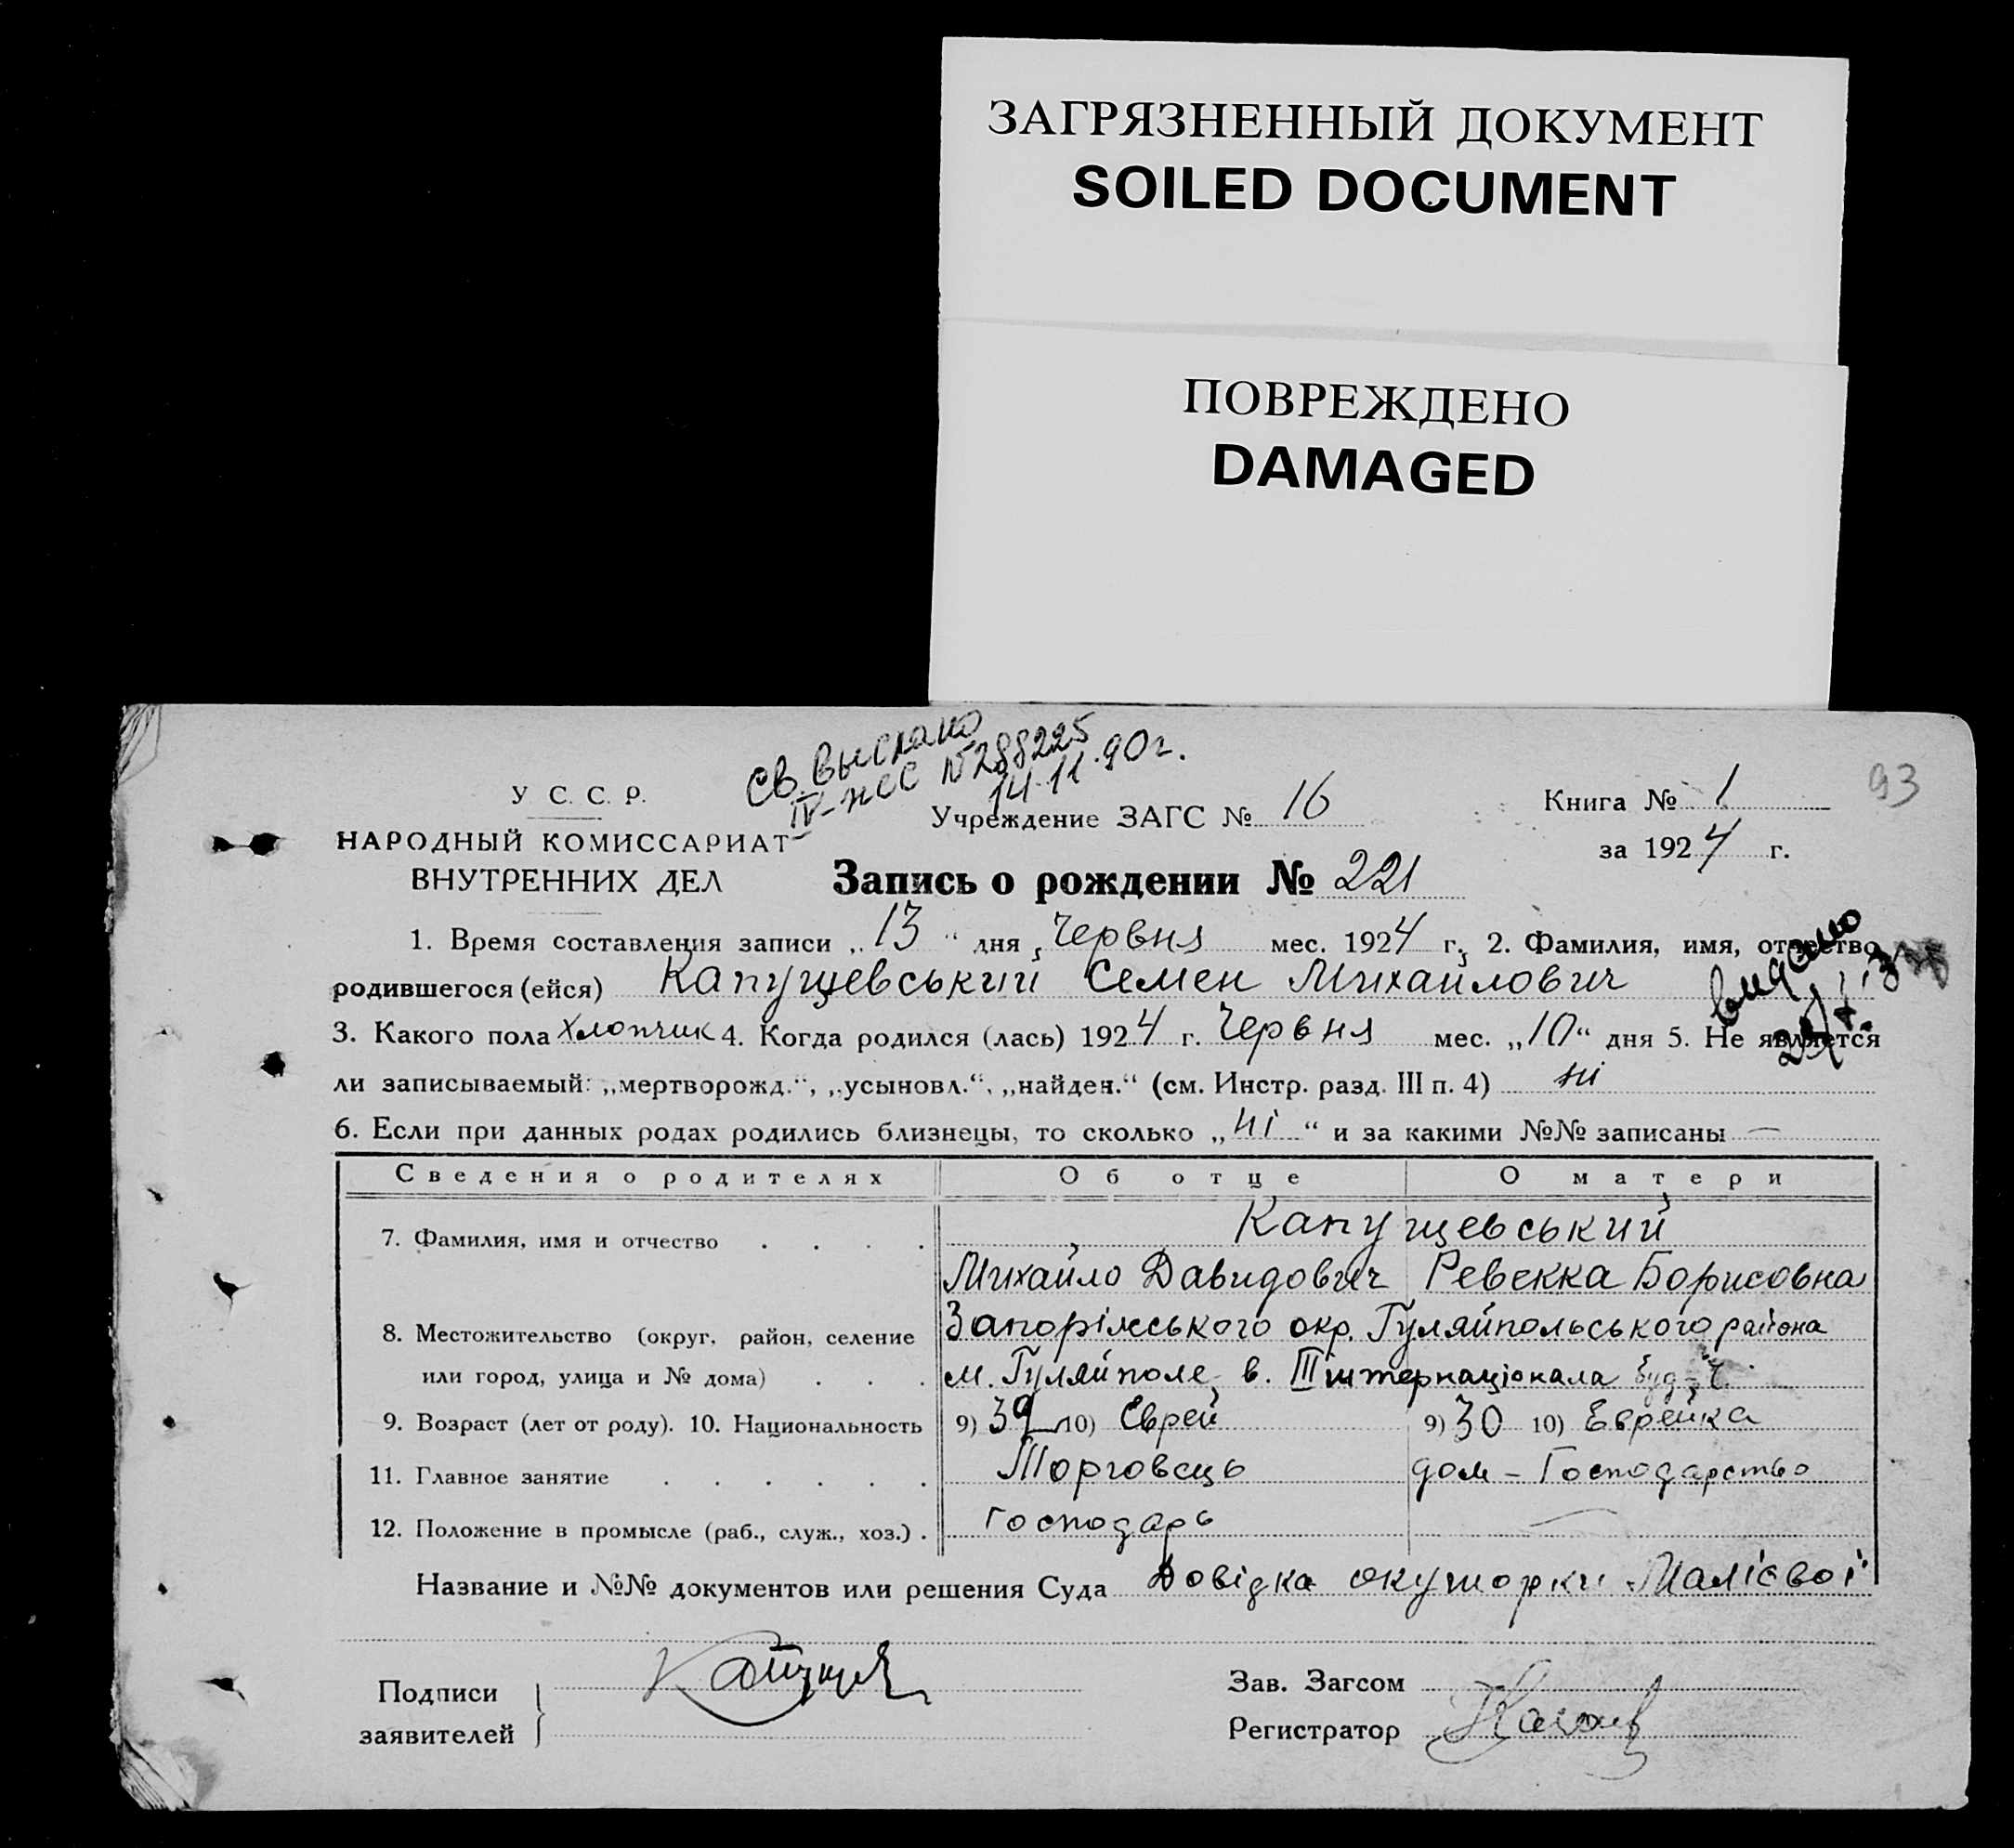 ЗАГРЯЗНЕННЫЙ ДОКУМЕНТ
SOILED DOCUMENT
ПОВРЕЖДЕНО
DAMAGED
Св. выслано
IV-ЖС №288225
14.11.90г.
93
У С. С. Р.
НАРОДНЫЙ КОМИССАРИАТ
ВНУТРЕННИХ ДЕЛ
Учреждение ЗАГС № 16
Книга № 1
за 1924 г.
Запись о рождении № 221
1. Время составления записи „13“ дня Червня мес. 1924 г. 2. Фамилия, имя, отчество
родившегося (ейся) Капущевський Семен Михайлович
видано
3. Какого пола Хлопчик 4. Когда родился (лась) 1924 г. Червня мес. „10“ дня 5. Не является
ли записываемый: „мертворожд.“, „усыновл.“, „найден.“ (см. Инстр. разд. III п. 4) ні
6. Если при данных родах родились близнецы, то сколько „ні“ и за какими №№ записаны —
Сведения о родителях Об отце О матери
7. Фамилия, имя и отчество . . . . Капущевський
Михайло Давидович Ревекка Борисовна
8. Местожительство (округ, район, селение Запоріжського окр. Гуляйпольського района
или город, улица и № дома) . . . м. Гуляйполе, в. III інтернаціонала буд.
9. Возраст (лет от роду). 10. Национальность 9) 39 10) Еврей 9) 30 10) Еврейка
11. Главное занятие . . . . . . Торговець дом - Господарство
12. Положение в промысле (раб., служ., хоз.) . господарь —
Название и №№ документов или решения Суда Довідка окушорки Малієвої
Подписи
заявителей
Зав. Загсом
Регистратор